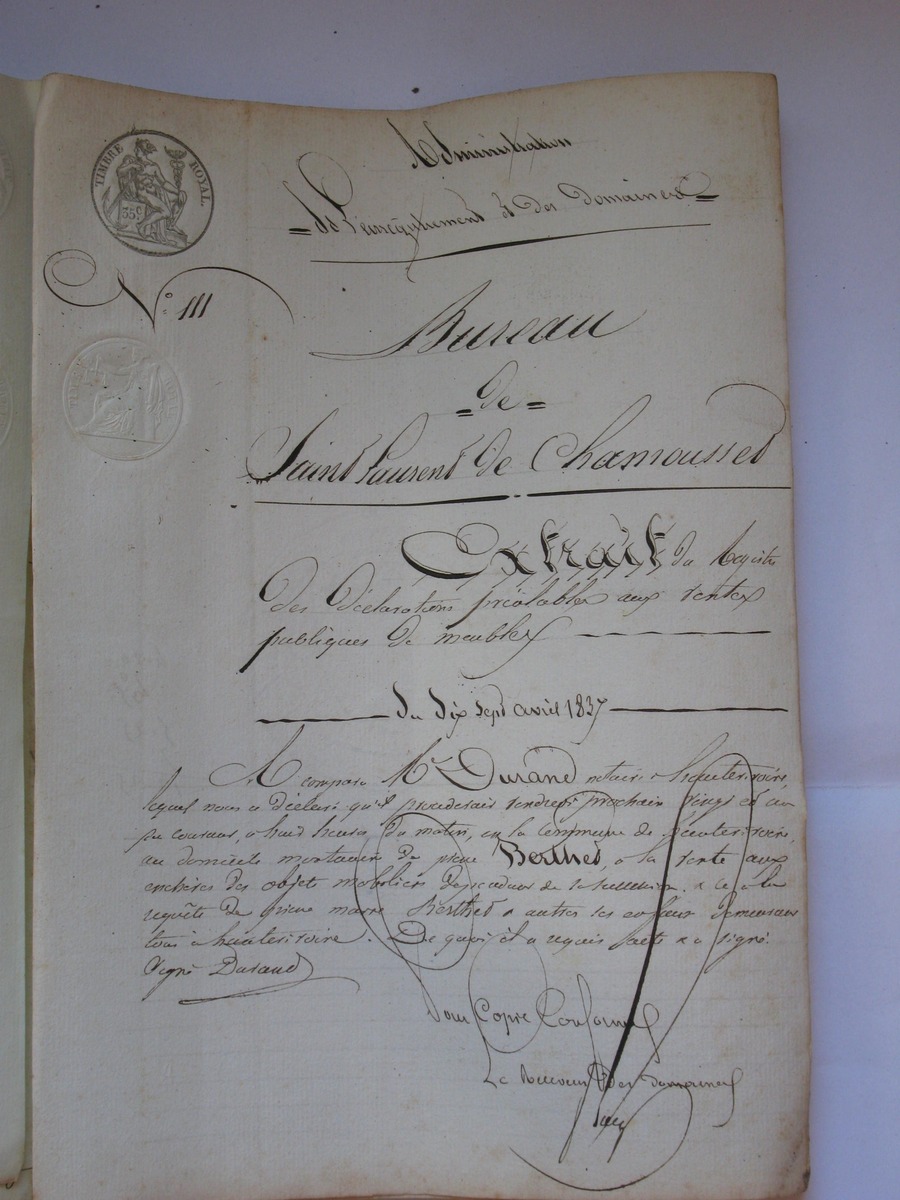 TIMBRE ROYAL
35c
Administration
de l'enregistrement et des domaines
N° 111
Bureau
de
Saint Laurent de Chamousset
Extrait du Registre
des déclarations préalables aux ventes
publiques de meubles
du dix sept avril 1837
A comparu Me Durand notaire à hauterivoire
lequel nous a déclaré qu'il procéderait vendredi prochain vingt et un
du courant, à huit heures du matin, en la Commune de hauterivoire,
au domicile mortuaire de pierre Berthet, à la vente aux
enchères des objets mobiliers dépendant de sa succession. & ce à la
requête de pierre marie Berthet & autres ses enfans demeurant
tous à hauterivoire. De quoi il a requis acte & a signé.
Signé Durand
Pour Copie Conforme
Le Receveur des domaines